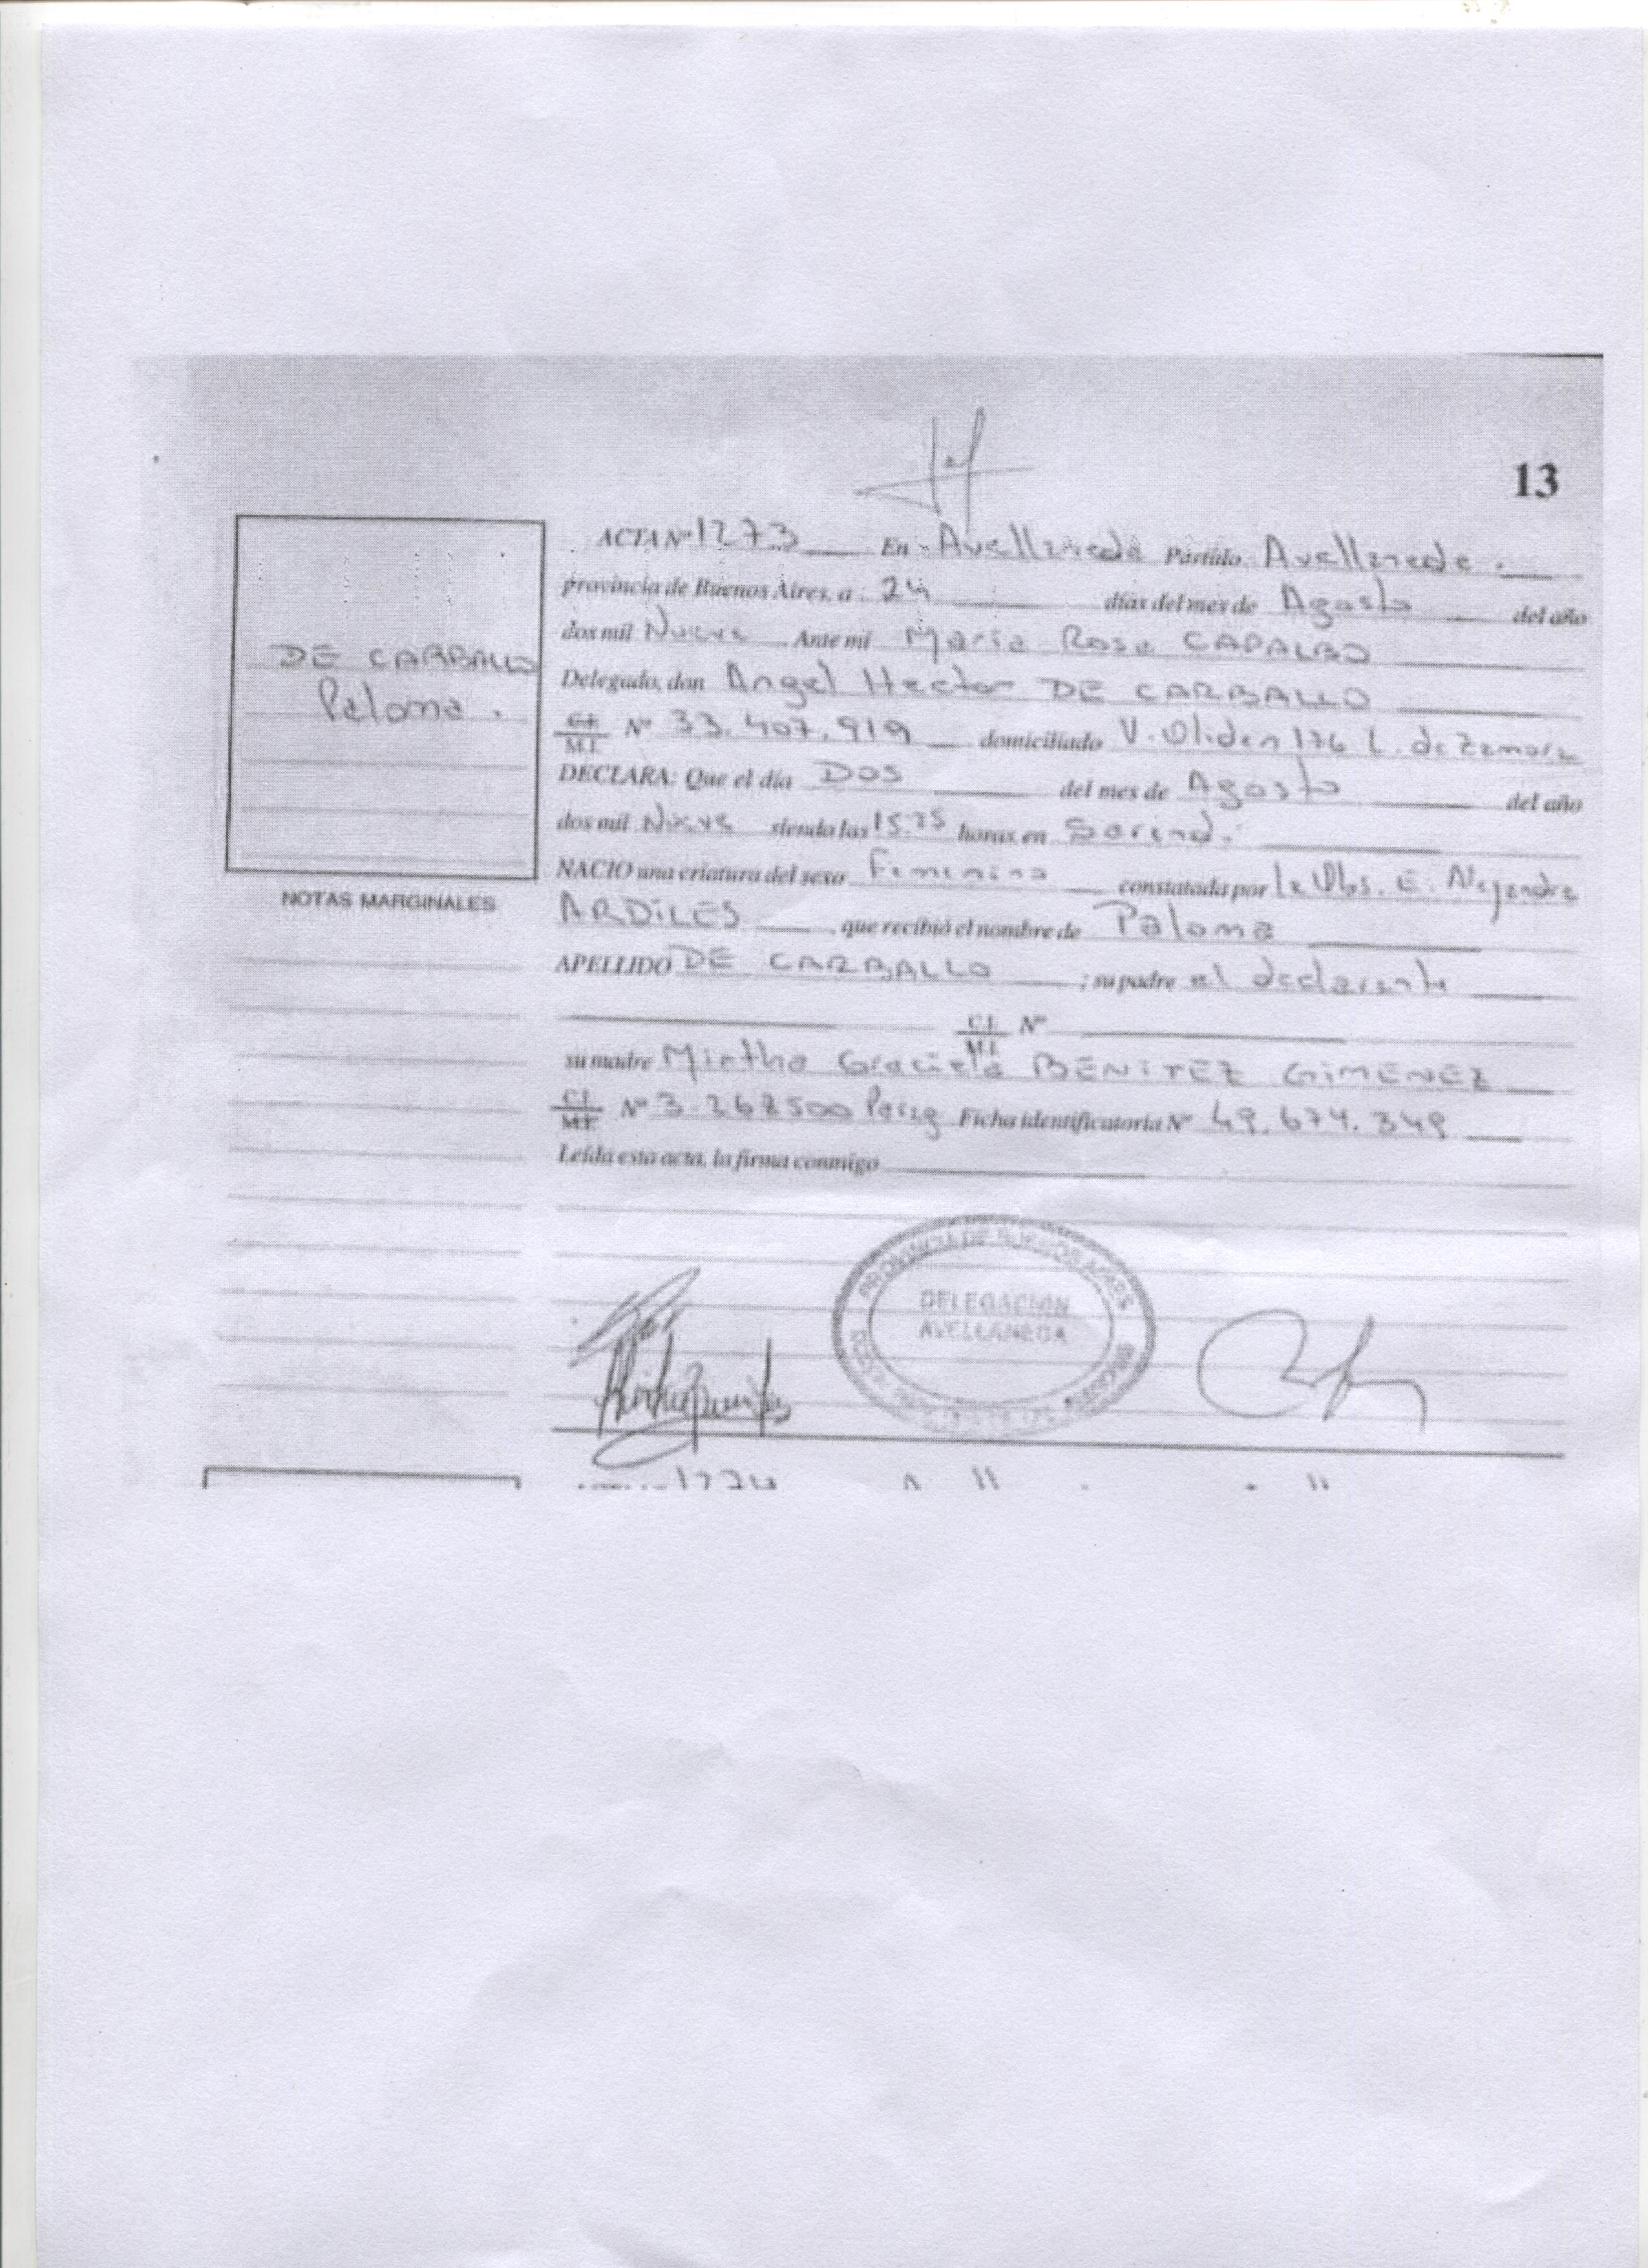 13
ACTA Nº 1273 En Avellaneda Partido Avellaneda.
provincia de Buenos Aires, a 24 días del mes de Agosto del año
dos mil Nueve Ante mí Maria Rosa CAPALBO
Delegado, don Angel Hector DE CARBALLO
C.I. M.I. Nº 33.407.919 domiciliado V. Oliden 176 L. de Zamora
DECLARA: Que el día DOS del mes de Agosto del año
dos mil Nueve siendo las 15.25 horas en Sarandí
NACIO una criatura del sexo Femenino constatada por La Obs. E. Alejandra
ARDILES, que recibió el nombre de Paloma
APELLIDO DE CARBALLO; su padre el declarante
C.I. M.I. Nº
su madre Mirtha Graciela BENITEZ GIMENEZ
C.I. M.I. Nº 3.267500 Ficha identificatoria Nº 49.674.349
Leída esta acta, la firma conmigo
DE CARBALLO
Paloma.
NOTAS MARGINALES
PROVINCIA DE BUENOS AIRES
DELEGACION
AVELLANEDA